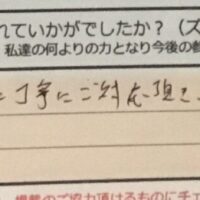 れていかがでしたか？（ズ
私達の何よりの力となり今後の参
丁寧にご対応頂き
掲載のご協力頂けるものにチェ